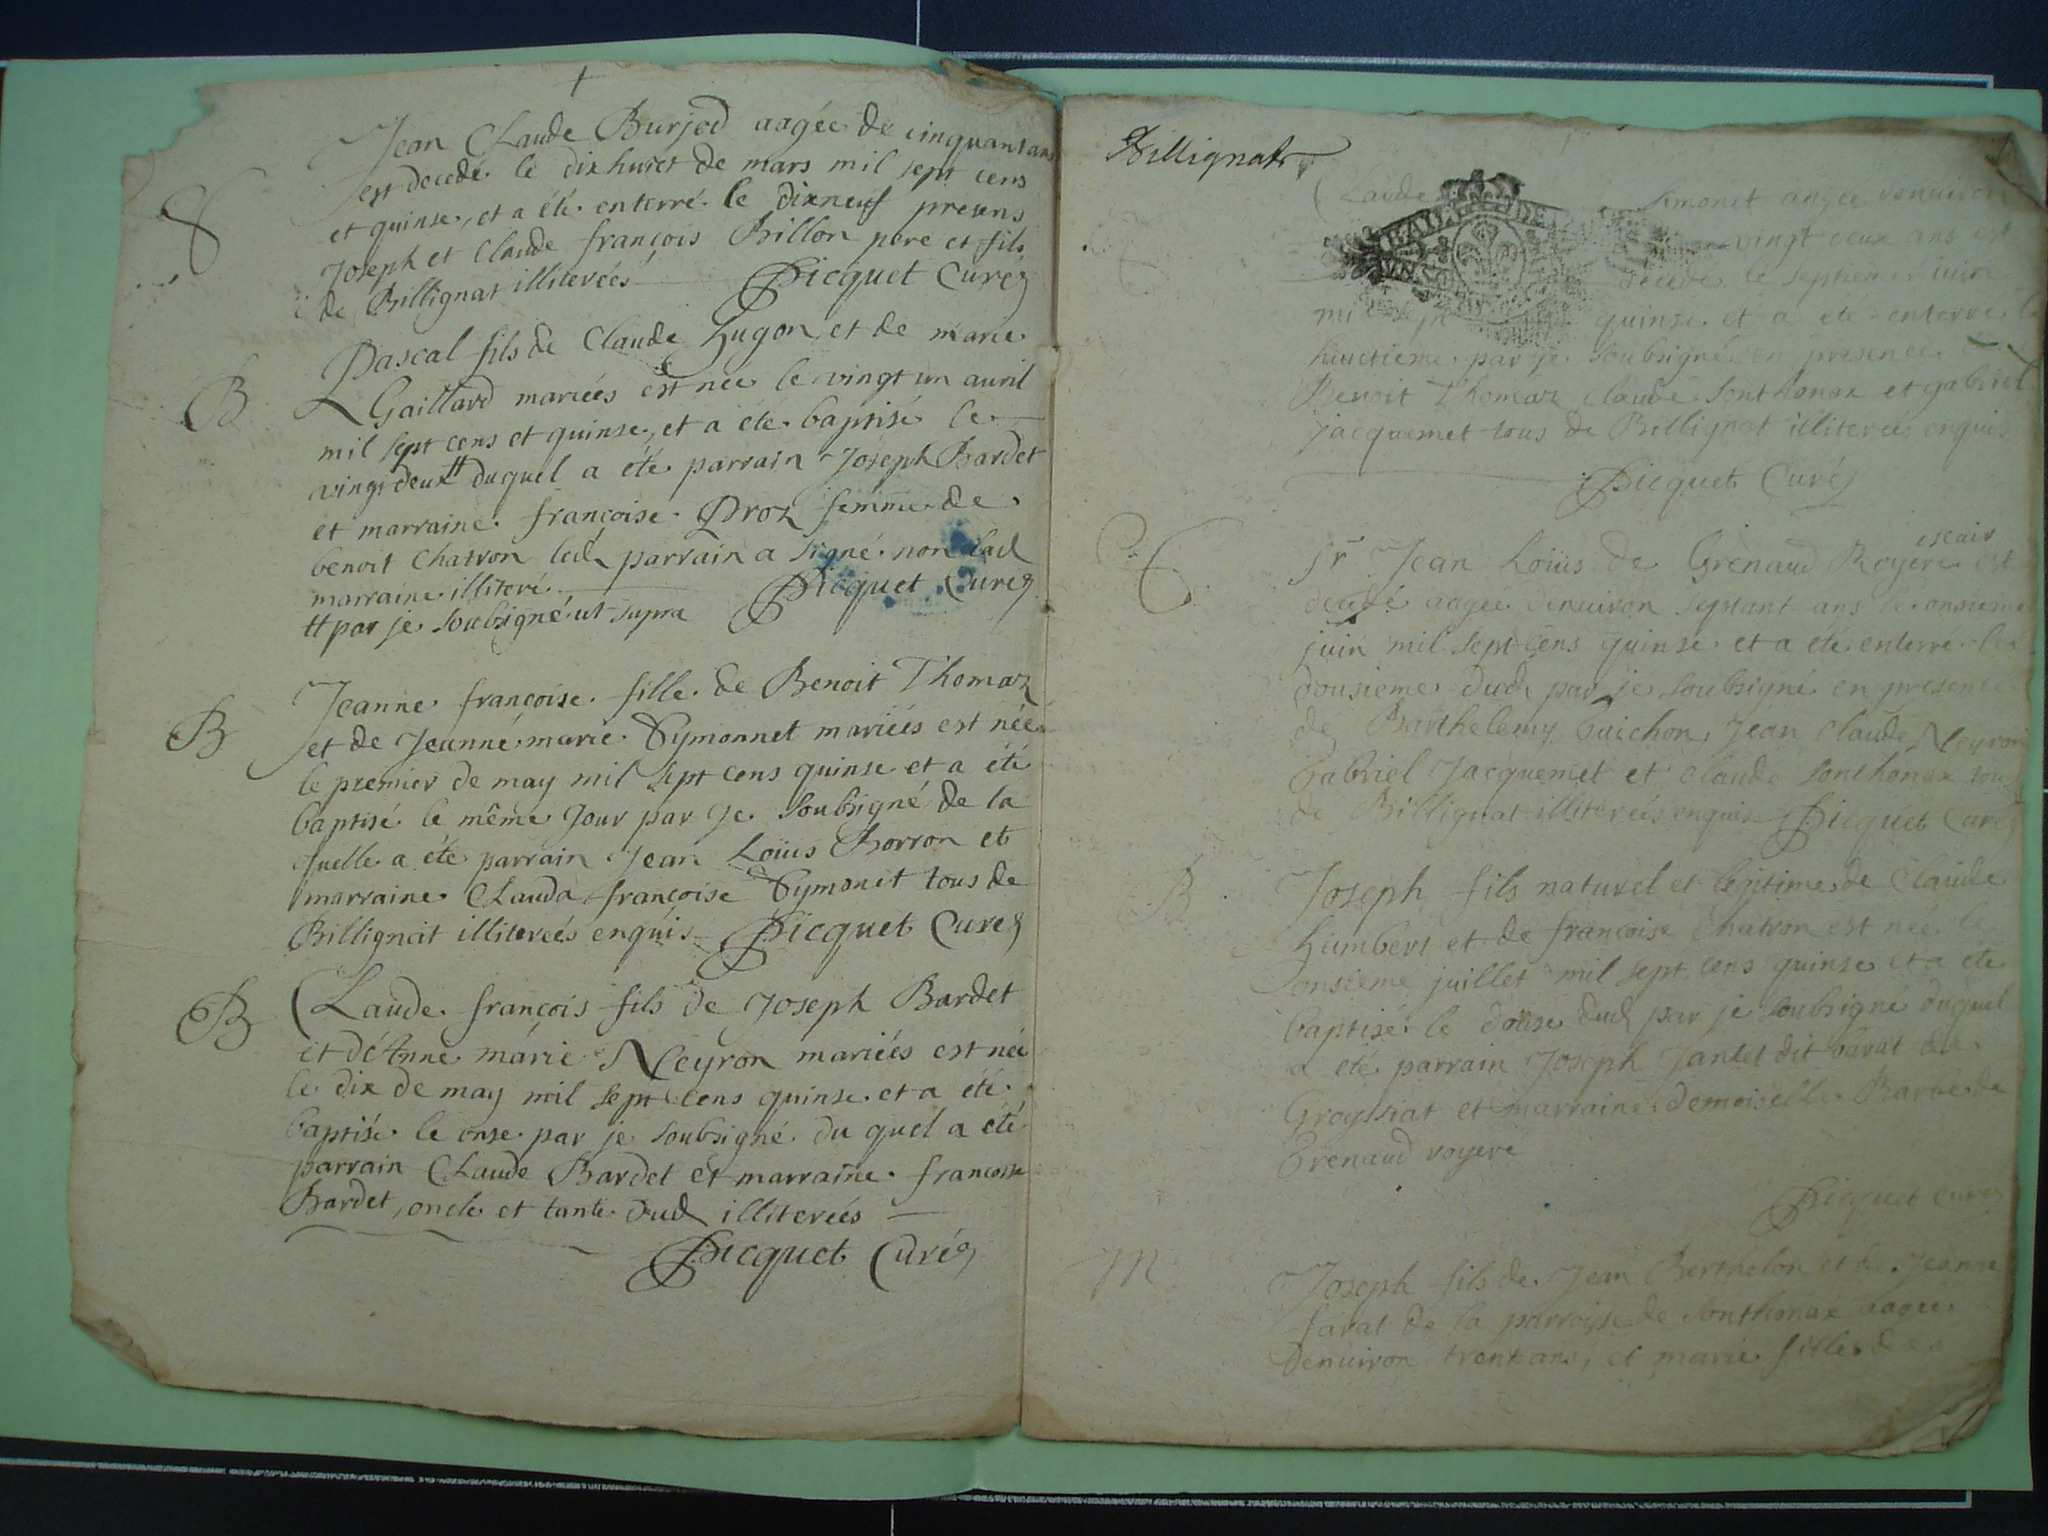 Jean Claude Burjod aagée de cinquant ans
est decedé le dix huict de mars mil sept cens
et quinse, et a été enterré le dixneuf presens
Joseph et Claude françois Billon pere et fils
de Billignat illiterées Picquet Curé
B
Pascal fils de Claude Hugon et de marie
Gaillard mariées est née le vingt un auril
mil sept cens et quinse, et a été baptisé le
vingt deux # duquel a été parrain Joseph Bardet
et marraine françoise Proz femme de
benoit Chatron led parrain a signé non lad
marraine illiteré Picquet Curé
# par je soubsigné ut supra
B
Jeanne françoise fille de Benoit Thomaz
et de Jeanne marie Symonnet mariées est née
le premier de may mil sept cens quinse et a été
baptisé le même Jour par Je soubsigné de la
quelle a été parrain Jean Loüis Borron et
marraine Clauda françoise Symonet tous de
Billignat illitereés enquis Picquet Curé
B
Claude françois fils de Joseph Bardet
et d'Anne marie Neyron mariées est née
le dix de may mil sept cens quinse et a été
baptisé le onse par je soubsigné du quel a été
parrain Claude Bardet et marraine francoise
Bardet, oncle et tante dud illitereés
Picquet Curé
Billignat
Claude Simonet aagée denuiron
vingt deux ans est
decedé le septieme juin
mil sept quinse et a été enterré le
huictieme par je soubsigné en presence de
Benoit Thomaz Claude Sonthonax et gabriel
Jacquemet tous de Billignat illitereés enquis
Picquet Curé
escuir
Sr Jean Loüis de Grenaud Royere est
decedé aagée denuiron septant ans le onsieme
juin mil sept cens quinse et a été enterré le
dousieme dud par je soubsigné en presence
de Barthelemy Guichon, Jean Claude Neyron
Gabriel Jacquemet et Claude Sonthonax tous
de Billignat illitereés enquis Picquet Curé
B
Joseph fils naturel et legitime de Claude
Humbert et de françoise Chatron est née le
onsieme juillet mil sept cens quinse et a été
baptisé le douse dud par je soubsigné duquel
a été parrain Joseph Jantet dit barat de
Groyssiat et marraine demoiselle Barbe de
Grenaud royere
Picquet curé
M
Joseph fils de Jean Berthelon et de Jeanne
favat de la parroisse de Sonthonax aagée
denuiron trent ans, et marie fille de